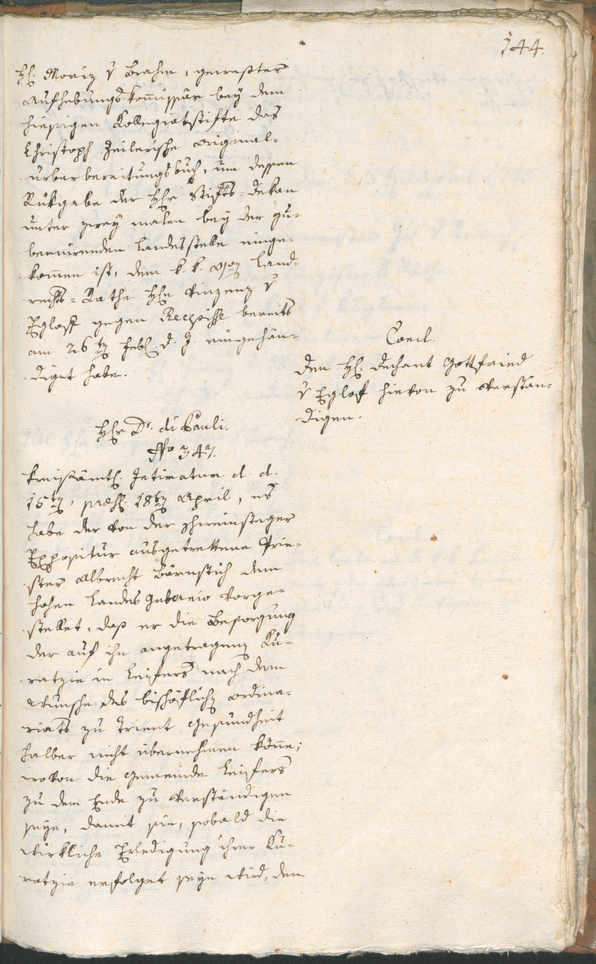 144.
H: Moriz v Brahm, gewester
Aufhebungskom̅issär bey dem
hiesigen Kollegiatstifte das
Christoph Zeilerische Original-
urbarbereitungsbuch, um dessen
Rükgabe der Hhr Stifts-Dekan
unter zwey malen bey der gu-
bernirenden Landesstelle einge-
kom̅en ist, dem k. k. Land-
rechts-Rathe Hhn Vinzenz v
Egloff gegen Recepisse bereits
am 26 Febr d. J. eingehän-
diget habe.
Concl.
Den H: Dechant Gottfried
v Egloff hievon zu verstän-
digen.
Hhr Dr. di Pauli.
No 347.
Kreisämtl. Intimatum d. d.
15t, präs. 18t April, es
habe der von der
Expositur ausgetrettene Prie-
ster Albrecht dem
hohen Landes Gubernio vorge-
stellet, daß er die Besorgung
der auf ihn angetragenen Ku-
ratzie in Leifers nach dem
Wunsche des bischöflichen Ordina-
riats zu Trient Gesundheit
halber nicht übernehmen könne;
wovon die Gemeinde Leifers
zu dem Ende zu verständigen
seye, damit sie, sobald die
wirkliche Erledigung ihrer Ku-
ratzie erfolget seyn wird, den